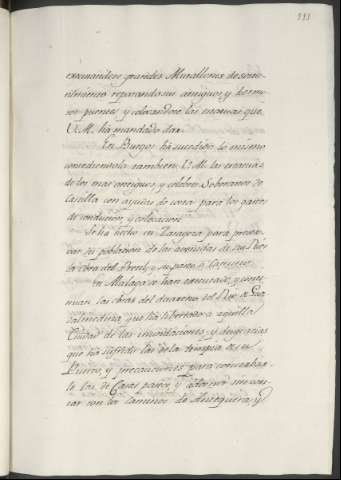 333
grandes Murallones de soste-
nimiento reparando sus antiguos y hermo-
sos puentes y colocandose las estatuas que
V. M. ha mandado dar.
En Burgos ha sucedido lo mismo
concediendola tambien V. M. las estatuas
de los mas antiguos, y celebres Soberanos de
Castilla con ayuda de costa para los gastos
de conducion, y colocacion.
Se ha hecho en Zaragoza para
su poblacion de las de su Rio
la obra del Pretil, y su paseo
En Malaga se han executado, y conti-
nuan las obras del desareno del Rio de Gua-
dalmedina, que ha libertado a aquella
Ciudad de las inundaciones, y desgracias
que ha sufrido las de la limpia de su
Puerto, y precauciones para conservar-
le las de Casas paseos, y adornos
con los caminos de Antequera, y